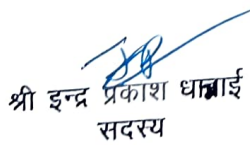 श्री इन्द्र प्रकाश धानाई
सदस्य